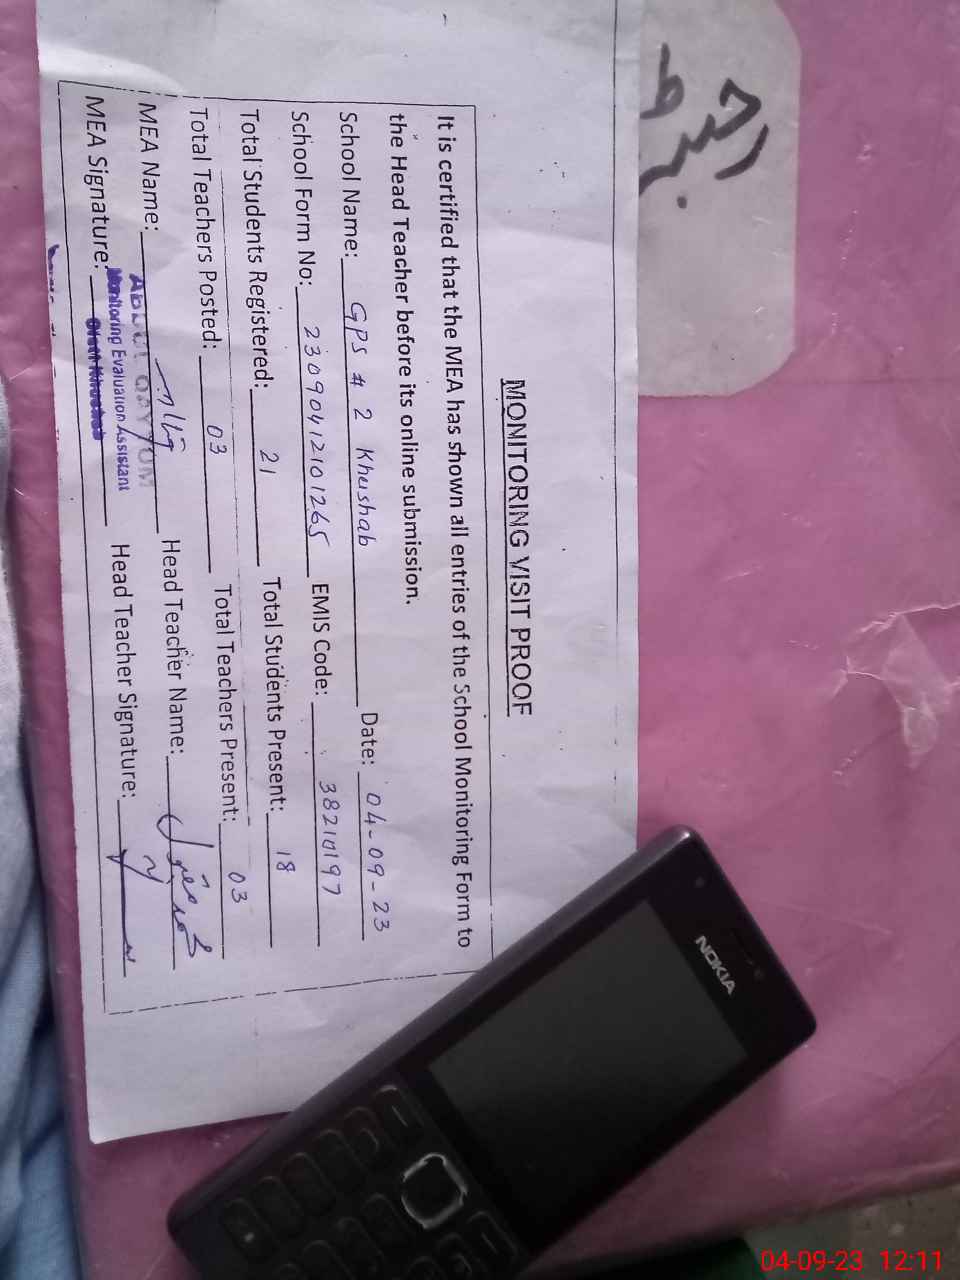 MONITORING VISIT PROOF
It is certified that the MEA has shown all entries of the School Monitoring Form to
the Head Teacher before its online submission.
School Name: GPS # 2 Khushab Date: 04-09-23
School Form No: 23090412101265 EMIS Code: 38210197
Total Students Registered: 21 Total Students Present: 18
Total Teachers Posted: 03 Total Teachers Present: 03
MEA Name: ABDUL QAYYUM Head Teacher Name:
Monitoring Evaluation Assistant
MEA Signature: Distt Khushab Head Teacher Signature:
NOKIA
04-09-23 12:11